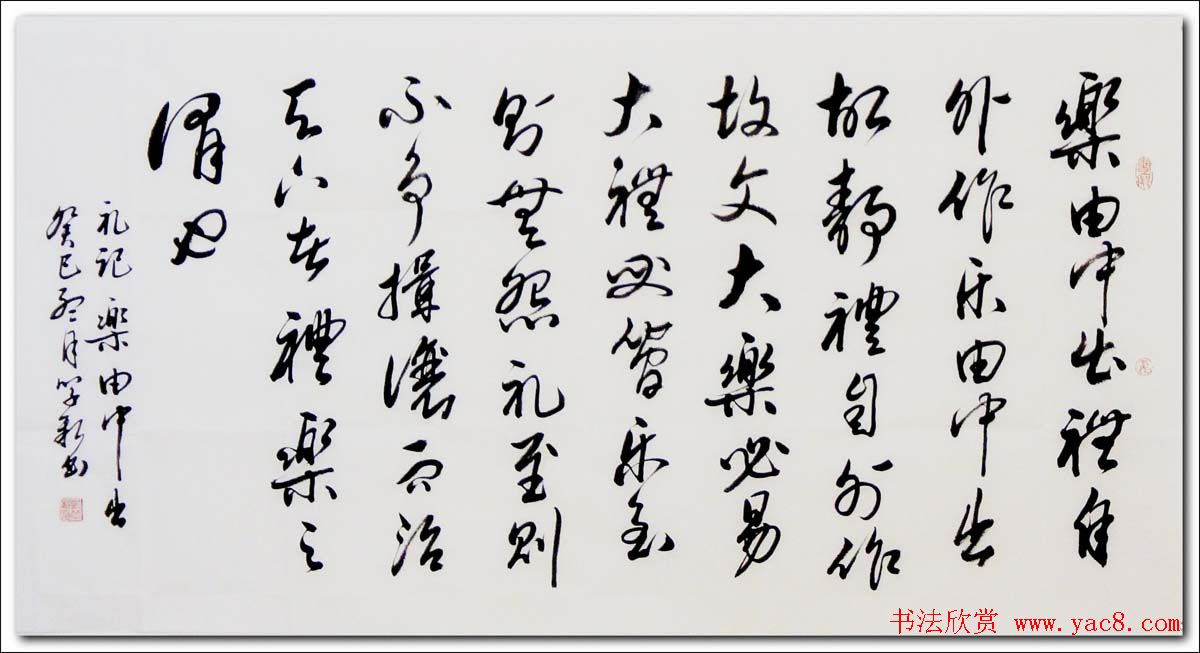 樂由中出禮自
外作乐由中出
故静禮自外作
故文大樂必易
大禮必簡乐至
则無怨礼至则
不争揖讓而治
天下者禮樂之
谓也
礼记樂由中出
癸巳月学书
书法欣赏 www.yac8.com